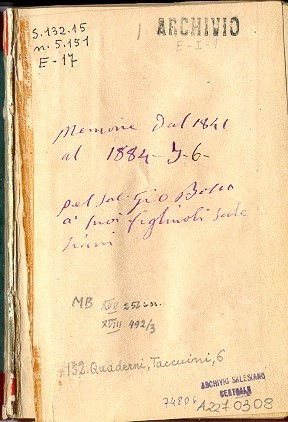 S.132.15
n. 5.151
E-17
ARCHIVIO
E-I-1
Memorie dal 1841
al 1884-5-6-
pel Sac. Gio Bosco
a' suoi figliuoli sale
siani
MB XVII 256 sn.
XVIII 492/3
132. Quaderni, Taccuini, 6
74806
ARCHIVIO SALESIANO
CENTRALE
A2270308